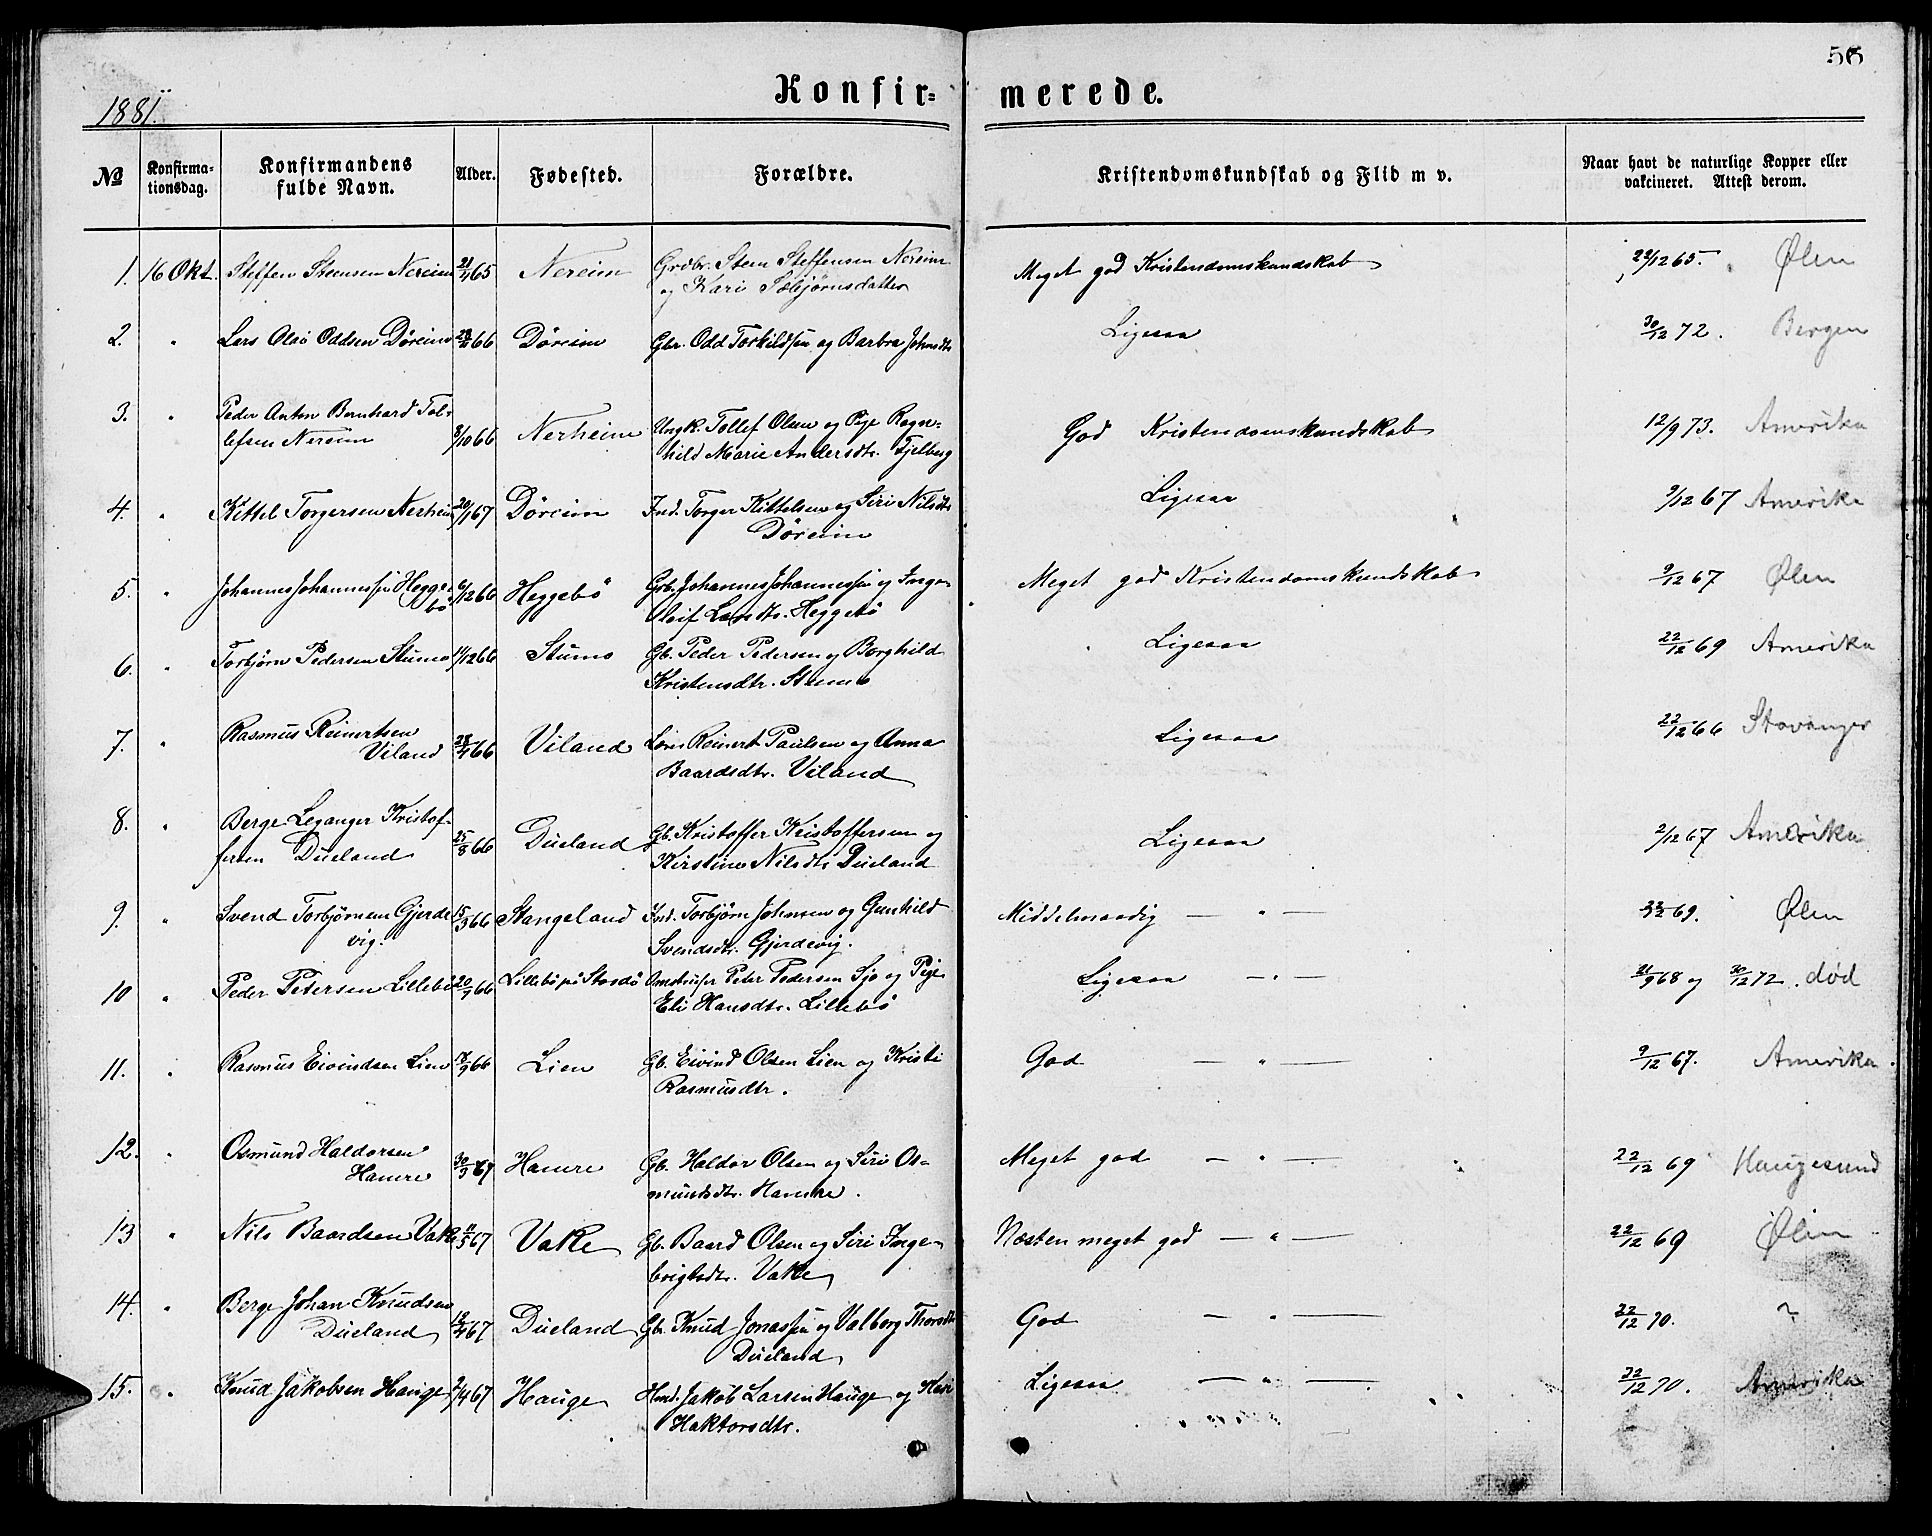 56
1881.
Konfir=
merede.
№
Konfirma-
tionsdag.
Konfirmandens
fulde Navn.
Alder.
Fødested.
Forældre.
Kristendomskundskab og Flid m v.
Naar havt de naturlige Kopper eller
vakcineret. Attest derom.
1. 16 Okt. Steffen Steensen Nereim 21/11 65 Nereim Grdbr. Steen Steffensen Nereim
og Kari Sæbjørnsdatter
Meget god Kristendomskundskab 22/12 65. Ølen
2. " Lars Olai Oddsen Döreim 66 Döreim Gbr. Odd Torkildsen og Barbra Johnsdtr
Ligesaa 30/12 72. Bergen
3. " Peder Anton Bernhard Tol-
lefsen Nereim 3/10 66 Nerheim Ungk. Tollef Olsen og Pige Ragn-
hild Marie Andersdtr. Fjelberg
God Kristendomskundskab 12/9 73. Amerika
4. " Kittel Torgersen Nerheim 20/1 67 Döreim Ind. Torger Kittelsen og Siri Nilsdtr
Döreim
Ligesaa 9/12 67 Amerika
5. " Johannes Johannessen Hegge-
bö 6/12 66 Heggebö Grb. Johannes Johannessen og Inga
Oleif Larsdtr. Heggebö
Meget god Kristendomskundskab 9/12 67 Ølen
6. " Torbjörn Pedersen Stumo 11/12 66 Stumo Gb. Peder Pedersen og Borghild
Kristensdtr. Stumo
Ligesaa 22/12 69 Amerika
7. " Rasmus Reinertsen
Viland 66 Viland Reinert Paulsen og Anna
Baardsdtr. Viland
Ligesaa 22/12 66 Stavanger
8. " Berge Leganger Kristof-
fersen Düeland 25/8 66 Düeland Gb. Kristoffer Kristoffersen og
Kirstine Nilsdtr Düeland
Ligesaa 2/12 67 Amerika
9. " Svend Torbjörnsen Gjerde
vig. 66 Stangeland Ind. Torbjörn Johnsen og Gunhild
Svendsdtr. Gjerdevig.
Middelmaadig — " — 69. Ølen
10 " Peder Petersen Lillebö 66 Lillebö på Stordö Peter Pedersen og Pige
Eli Hansdtr. Lillebö
Ligesaa — " — 21/9 68 og 30/12 72. död
11. " Rasmus Eivindsen Lien 66 Lien Gb. Eivind Olsen Lien og Kristi
Rasmusdtr.
God — " — 9/12 67. Amerika
12. " Osmund Haldorsen
Hamre 30/3 67 Hamre Gb. Haldor Olsen og Siri Os-
mundsdtr. Hamre.
Meget god — " — 22/12 69 Haugesund
13 " Nils Baardsen Vake 11/5 67 Vake Gb. Baard Olsen og Siri Inge-
brigtsdtr. Vake
Næsten meget god — " — 22/12 69 Ølen
14. " Berge Johan Knudsen
Düeland 67 Düeland Gb. Knud Jonassen og Valborg Thorsdtr
Düeland
God — " — 22/12 70. ~
15. " Knud Jakobsen Hauge 67 Hauge Jakob Larsen Hauge og Kari
Haktorsdtr.
Ligesaa — " — 22/12 70. Amerika